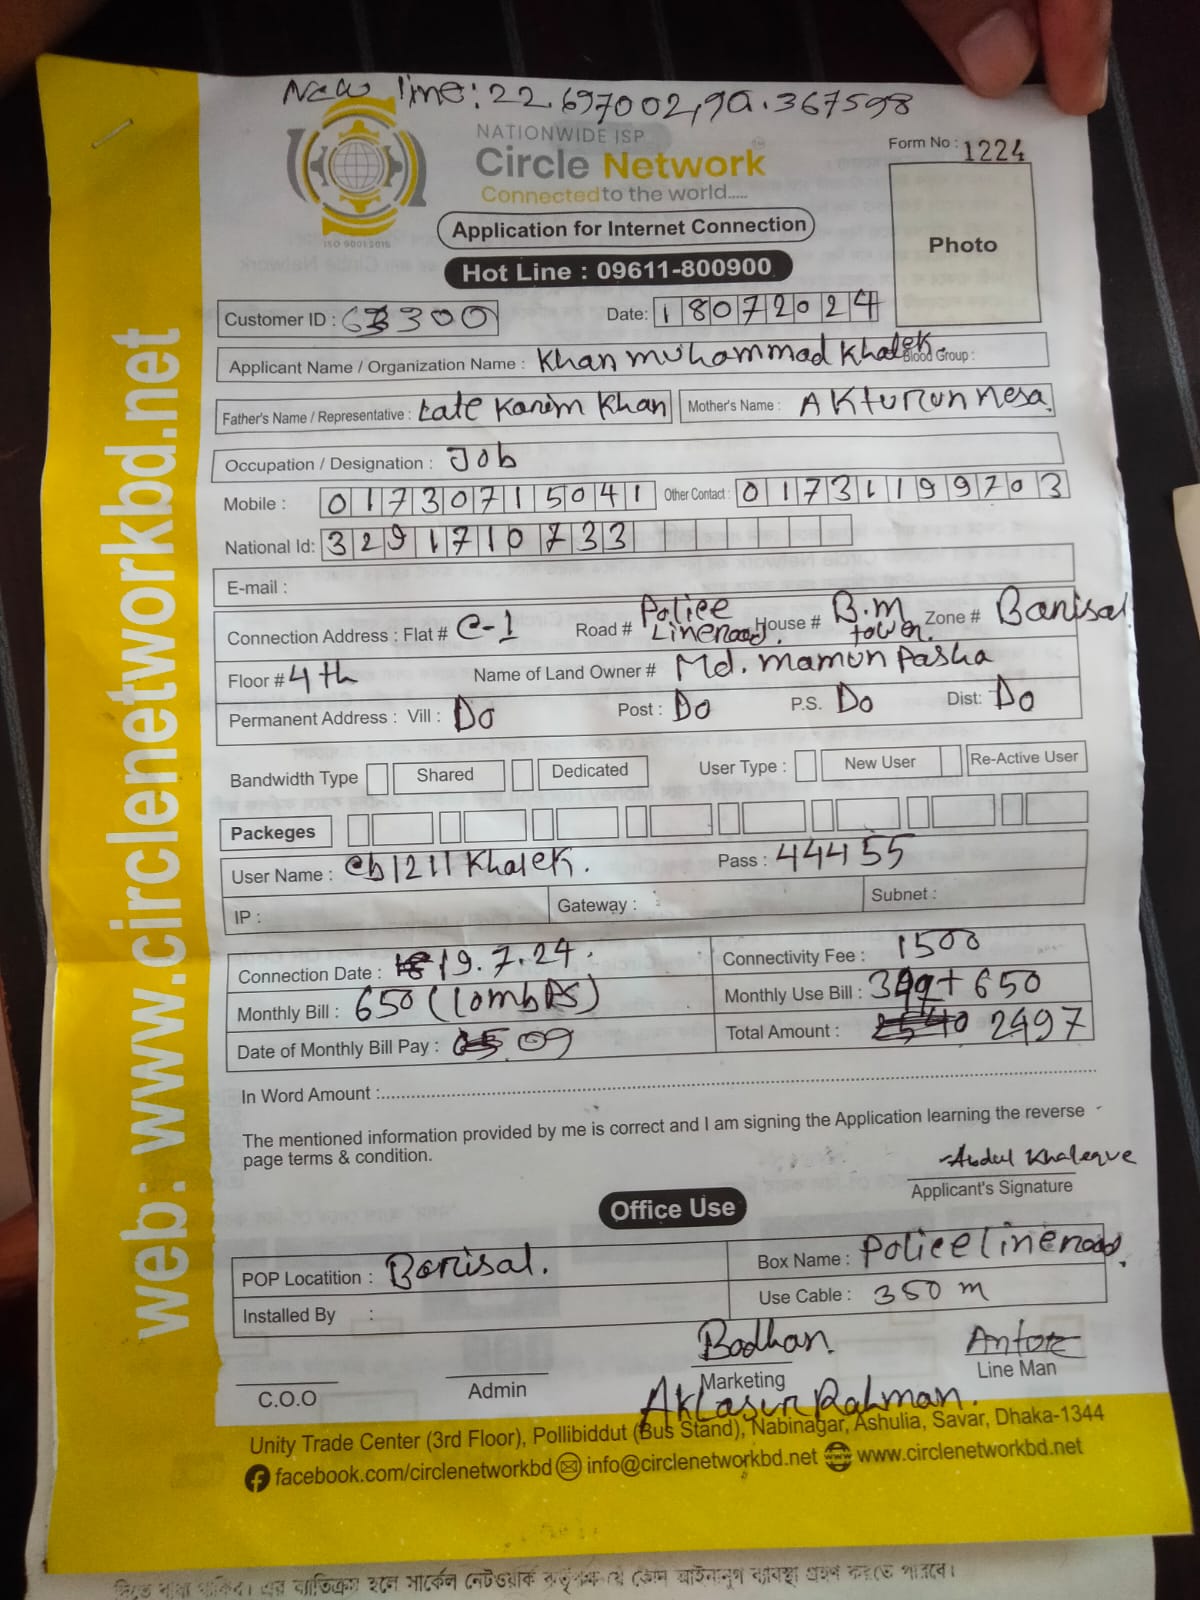 New line: 22.697002,90.367598
NATIONWIDE ISP
Circle Network
Connected to the world.....
ISO 9001:2015
Form No : 1224
Photo
Application for Internet Connection
Hot Line : 09611-800900
Customer ID : 300
Date: 18072024
Applicant Name / Organization Name : Khan muhammad Khalek. Blood Group :
Father's Name / Representative : Late Karim Khan Mother's Name : Akturun nesa.
Occupation / Designation : Job
Mobile : 01730715041 Other Contact : 01731199703
National Id: 3291710733
E-mail :
Connection Address : Flat # C-1 Road # Police Line road. House # B.m tower. Zone # Barisal
Floor # 4th Name of Land Owner # Md. mamun Pasha
Permanent Address : Vill : Do Post : Do P.S. Do Dist: Do
Bandwidth Type Shared Dedicated User Type : New User Re-Active User
Packeges
User Name : cb1211khalek. Pass : 44455
IP : Gateway : Subnet :
Connection Date : 19.7.24. Connectivity Fee : 1500
Monthly Bill : 650 (10mbps) Monthly Use Bill : + 650
Date of Monthly Bill Pay : 09 Total Amount : 2540 2497
In Word Amount :
The mentioned information provided by me is correct and I am signing the Application learning the reverse
page terms & condition.
Abdul Khaleque
Applicant's Signature
Office Use
POP Locatition : Barisal. Box Name : Police line road.
Installed By : Use Cable : 350 m
Bodhan. Antor
C.O.O Admin Marketing Line Man
Aklasur Rahman.
Unity Trade Center (3rd Floor), Pollibiddut (Bus Stand), Nabinagar, Ashulia, Savar, Dhaka-1344
facebook.com/circlenetworkbd info@circlenetworkbd.net www.circlenetworkbd.net
web: www.circlenetworkbd.net
এর ব্যতিক্রম হলে সার্কেল নেটওয়ার্ক কর্তৃপক্ষ যে কোন আইনানুগ ব্যবস্থা গ্রহণ করতে পারবে।